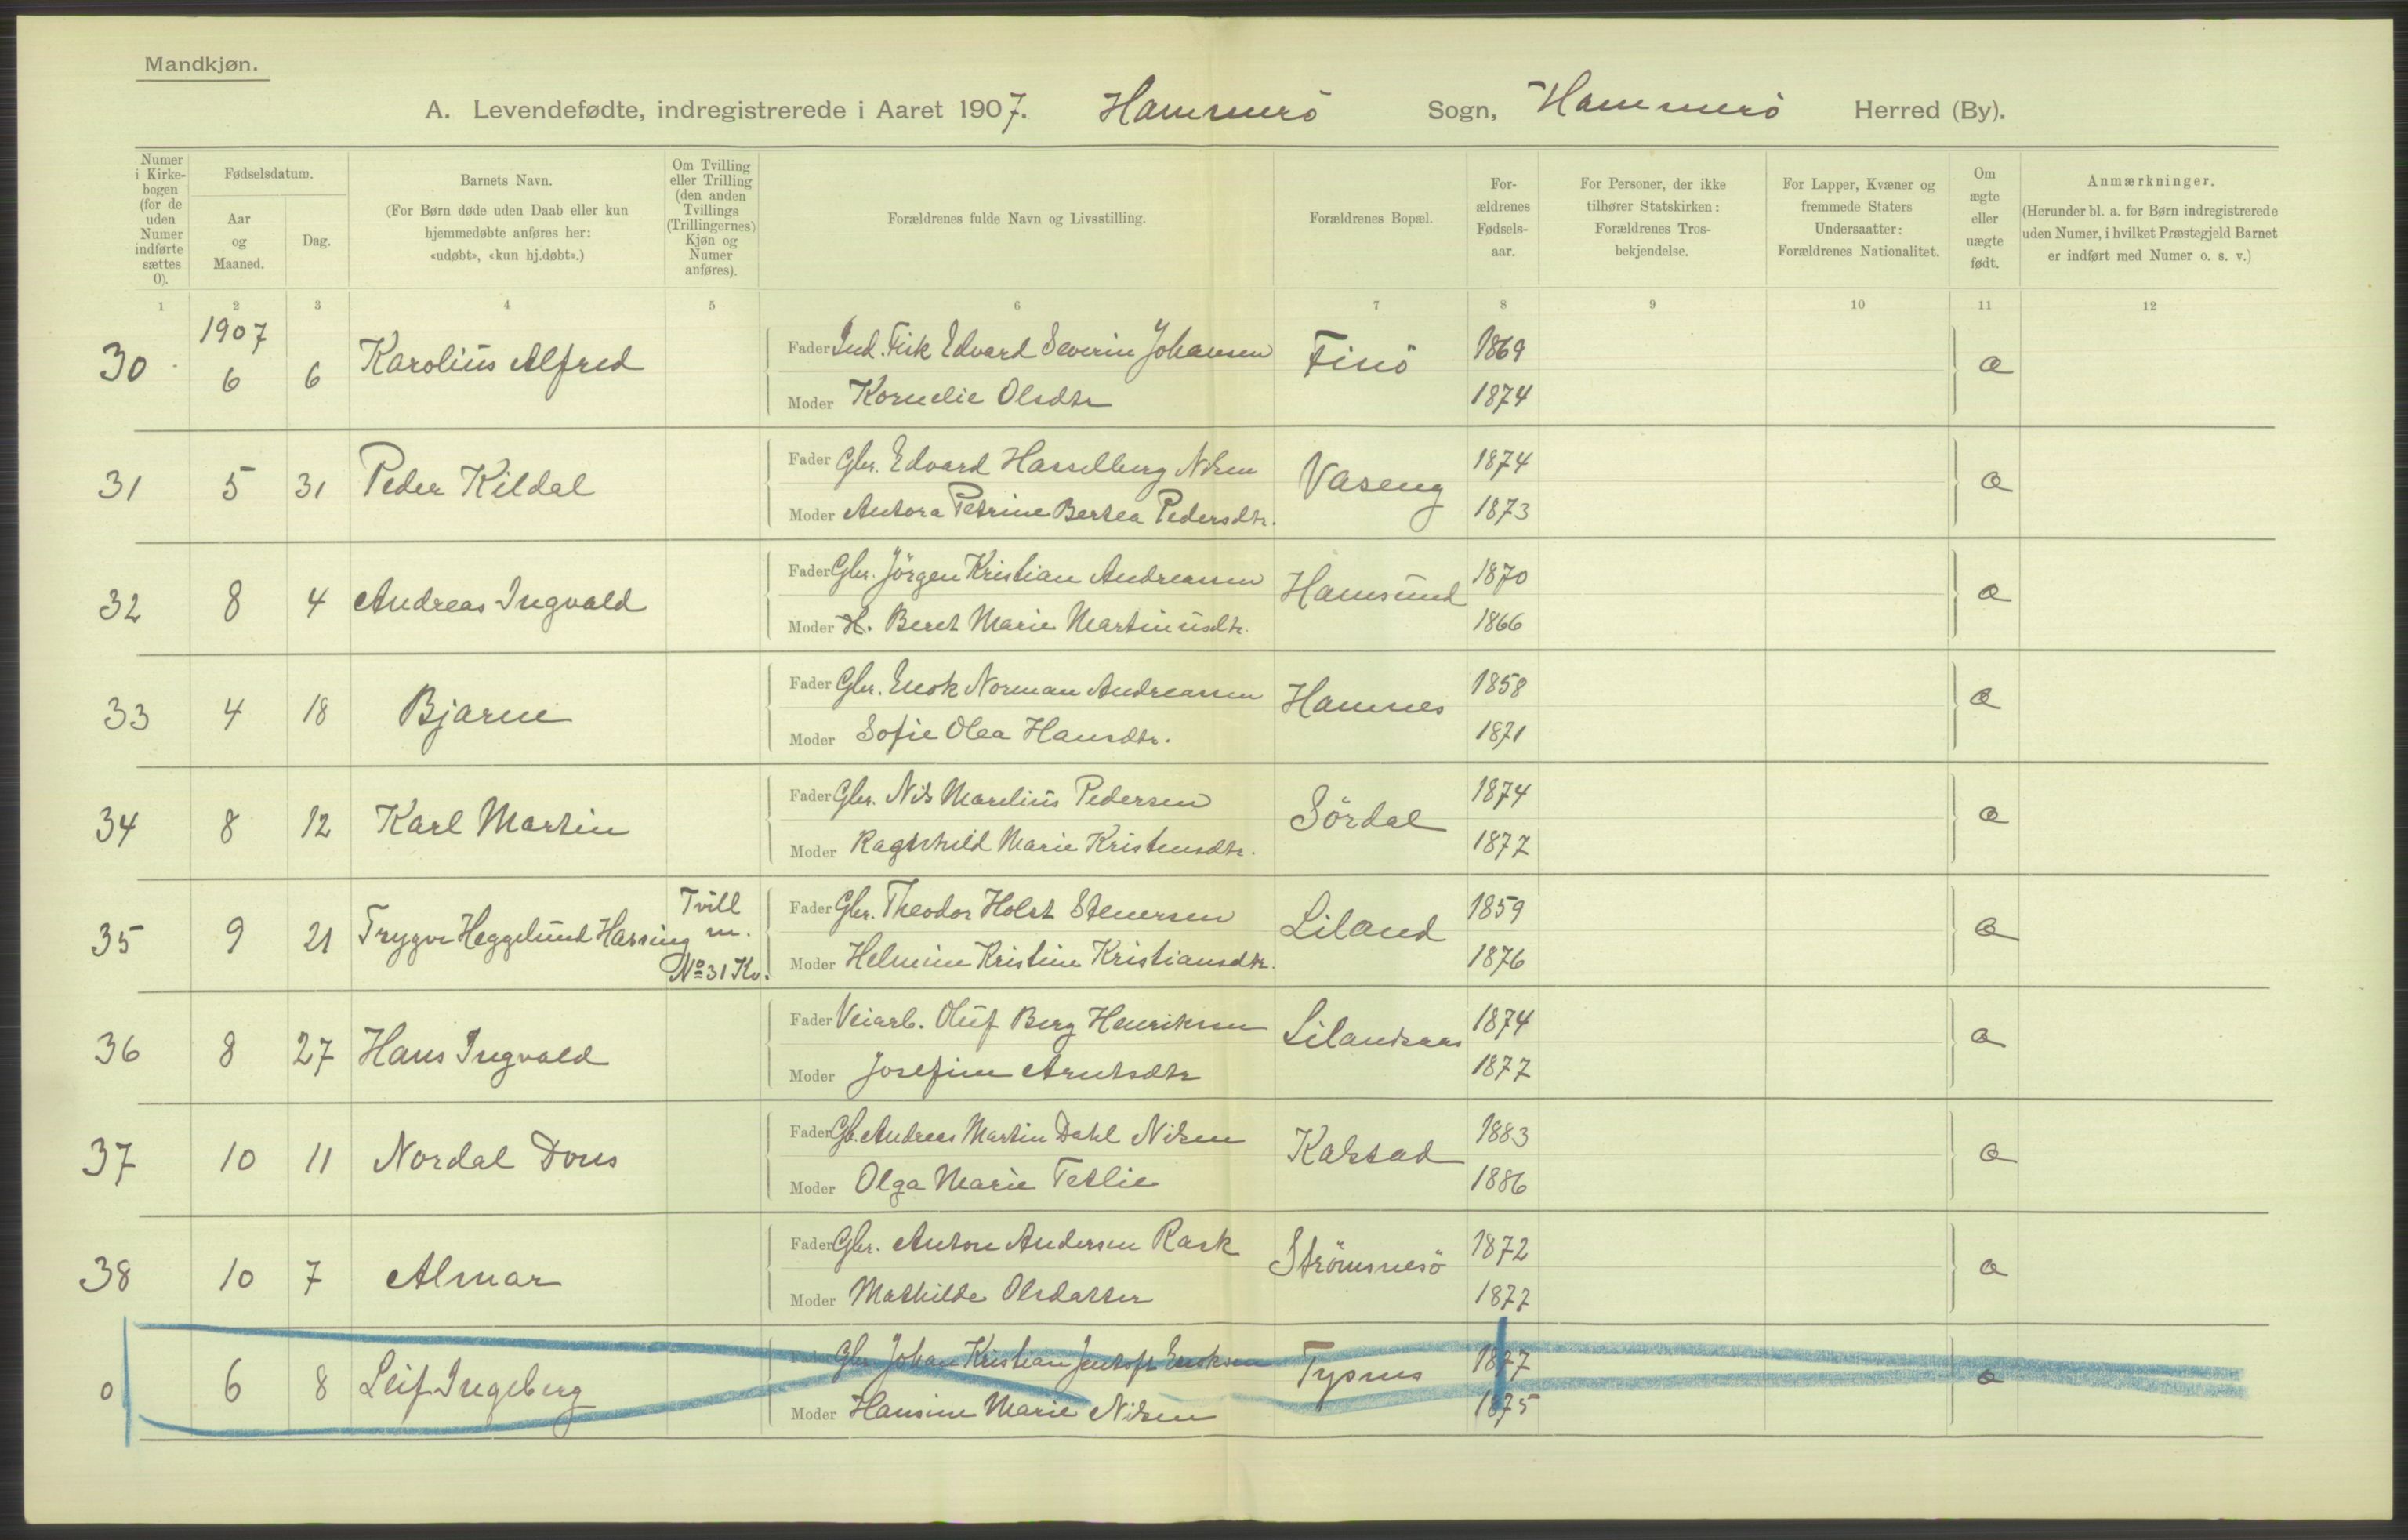 Mandkjøn.
A. Levendefødte, indregistrerede i Aaret 1907. Hammerö Sogn, Hammerö Herred (By).
Numer i Kirkebogen (for de uden Numer indførte sættes 0).
Fødselsdatum.
Aar og Maaned.
Dag.
Barnets Navn.
(For Børn døde uden Daab eller kun hjemmedøbte anføres her: «udøbt», «kun hj.døbt».)
Om Tvilling eller Trilling (den anden Tvillings (Trillingernes) Kjøn og Numer anføres).
Forældrenes fulde Navn og Livsstilling.
Forældrenes Bopæl.
For-ældrenes Fødsels-aar.
For Personer, der ikke tilhører Statskirken: Forældrenes Tros-bekjendelse.
For Lapper, Kvæner og fremmede Staters Undersaatter: Forældrenes Nationalitet.
Om ægte eller uægte født.
Anmærkninger.
(Herunder bl. a. for Børn indregistrerede uden Numer, i hvilket Præstegjeld Barnet er indført med Numer o. s. v.)
1 2 3 4 5 6 7 8 9 10 11 12
1907
30 6 6 Karolius Alfred Fader Ind. Fisk Edvard Severin Johansen Finö 1869 a
Moder Kornelie Olsdtr 1874
31 5 31 Peder Kildal Fader Gbr. Edvard Hasselberg Nilsen Vaseng 1874 a
Moder Antora Petrine Bertea Pedersdtr. 1873
32 8 4 Andreas Ingvald Fader Gbr. Jörgen Kristian Andreassen Hamsund 1870 a
Moder H. Beret Marie Martinusdtr. 1866
33 4 18 Bjarne Fader Gbr. Enok Norman Andreassen Hamnes 1858 a
Moder Sofie Olea Hansdtr. 1871
34 8 12 Karl Martin Fader Gbr. Nils Marelius Pedersen Sördal 1874 a
Moder Ragnhild Marie Kristensdtr. 1877
35 9 21 Trygve Heggelund Hassing Tvill m. No 31 Kv. Fader Gbr. Theodor Holst Stenersen Liland 1859 a
Moder Helmine Kristine Kristiansdtr. 1876
36 8 27 Hans Ingvald Fader Veiarb. Oluf Berg Henriksen Lilandsaas 1874 a
Moder Josefine Arntsdtr 1877
37 10 11 Nordal Dons Fader Gb. Andreas Martin Dahl Nilsen Kalstad 1883 a
Moder Olga Marie Tetlie 1886
38 10 7 Almar Fader Gbr. Anton Andersen Rask Strömsnesö 1872 a
Moder Mathilde Olsdatter 1877
0 6 8 Leif Ingeberg Fader Gbr Johan Kristian Jentoft Enoksen Tysnes 1877 a
Moder Hansine Marie Nilsen 1875